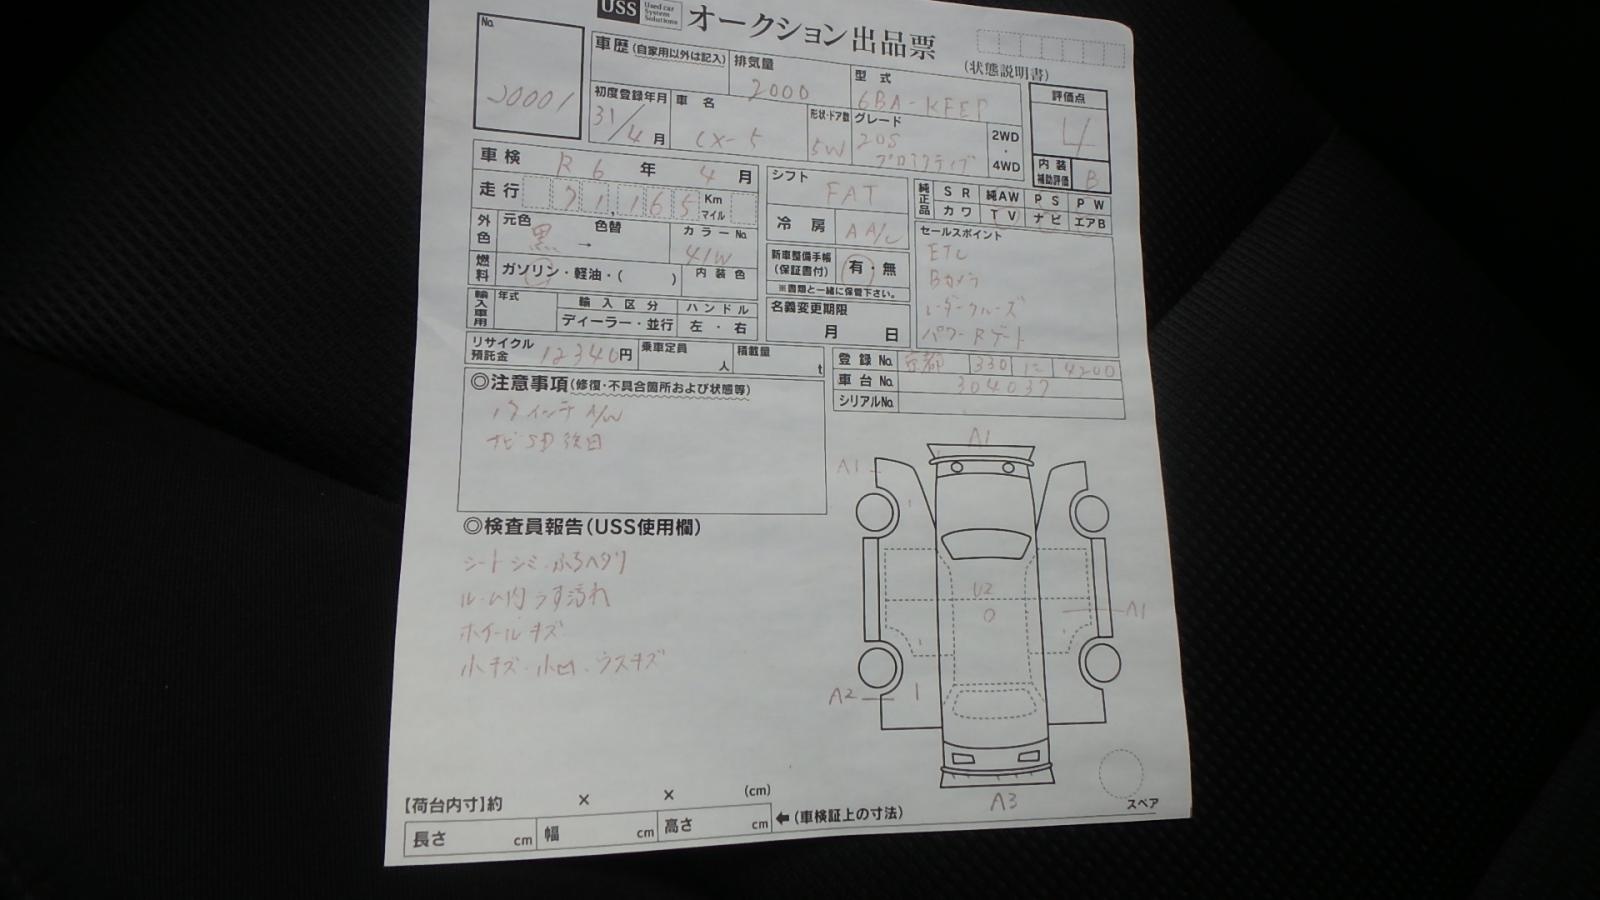 USS Used car System Solutions オークション出品票
(状態説明書)
No. 20001
車歴(自家用以外は記入)
排気量 2000
型式 6BA-KFEP
評価点 4
初度登録年月 31/4月
車名 CX-5
形状・ドア数 5W
グレード 20S プロアクティブ
2WD・4WD
内装補助評価 B
車検 R6年 4月
走行 71,165 Km マイル
シフト FAT
冷房 AA/C
純正品 SR 純AW PS PW
カワ TV ナビ エアB
外色 元色 黒 → 色替
カラーNo. 41W
燃料 ガソリン・軽油・( )
内装色
新車整備手帳(保証書付) 有・無
※書類と一緒に保管下さい。
セールスポイント
ETC
Bカメラ
レーダークルーズ
パワーRゲート
輸入車用 年式
輸入区分 ディーラー・並行
ハンドル 左・右
名義変更期限
月 日
リサイクル預託金 12340円
乗車定員 人
積載量 t
登録No. 京都 330 に 4200
車台No. 304037
シリアルNo.
◎注意事項(修復・不具合箇所および状態等)
インチ A/W
ナビSD後日
◎検査員報告(USS使用欄)
シートシミ・ふちヘタリ
ルーム内うす汚れ
ホイールキズ
小キズ・小凹・ウスキズ
A1
A1
U2
A1
A2
A3
スペア
【荷台内寸】約 × × (cm)
長さ cm 幅 cm 高さ cm ←(車検証上の寸法)